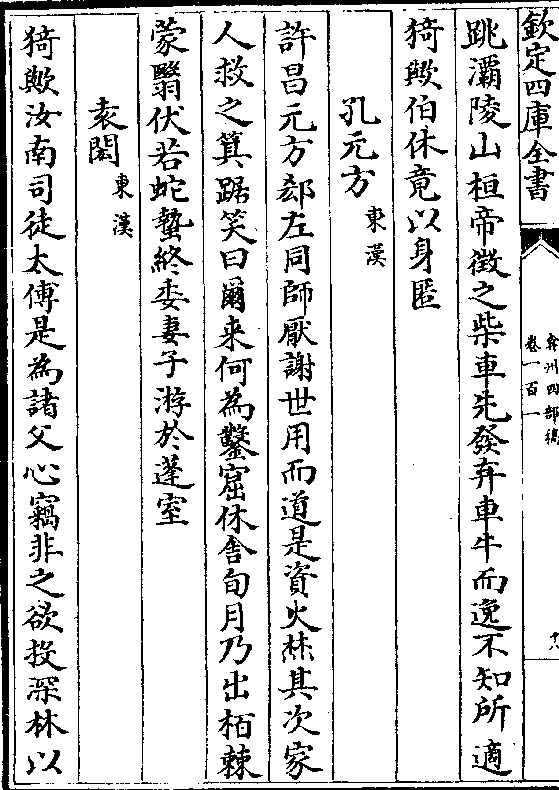 欽定四庫全書
弇州四部稿
卷一百一
十八
跳灞陵山桓帝徵之柴車先發弃車牛而逸不知所適
猗歟伯休竟以身匿
孔元方東漢
許昌元方郄左同師厭謝世用而道是資火焚其次家
人救之箕踞笑曰爾来何為鑿窟休舍旬月乃出栢棘
蒙翳伏若蛇蟄終委妻子游於蓬室
袁閎東漢
猗歟汝南司徒太傅是為諸父心竊非之欲投深林以